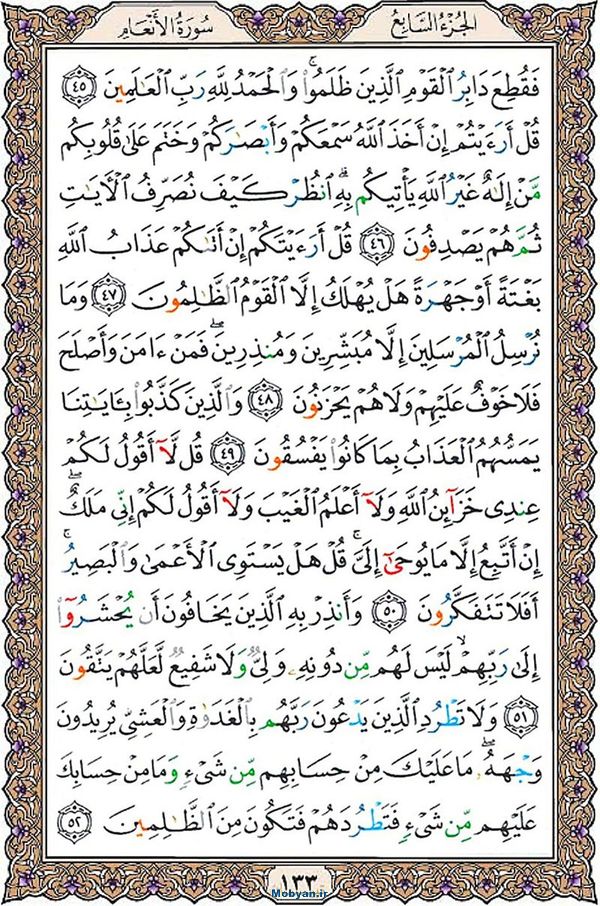 الجزء السابع
سورة الأنعام
فَقُطِعَ دَابِرُ الْقَوْمِ الَّذِينَ ظَلَمُوا ۚ وَالْحَمْدُ لِلَّهِ رَبِّ الْعَالَمِينَ ٤٥
قُلْ أَرَءَيْتُمْ إِنْ أَخَذَ اللَّهُ سَمْعَكُمْ وَأَبْصَارَكُمْ وَخَتَمَ عَلَىٰ قُلُوبِكُم
مَّنْ إِلَٰهٌ غَيْرُ اللَّهِ يَأْتِيكُم بِهِ ۗ انظُرْ كَيْفَ نُصَرِّفُ الْآيَاتِ
ثُمَّ هُمْ يَصْدِفُونَ ٤٦ قُلْ أَرَءَيْتَكُمْ إِنْ أَتَاكُمْ عَذَابُ اللَّهِ
بَغْتَةً أَوْ جَهْرَةً هَلْ يُهْلَكُ إِلَّا الْقَوْمُ الظَّالِمُونَ ٤٧ وَمَا
نُرْسِلُ الْمُرْسَلِينَ إِلَّا مُبَشِّرِينَ وَمُنذِرِينَ ۖ فَمَنْ ءَامَنَ وَأَصْلَحَ
فَلَا خَوْفٌ عَلَيْهِمْ وَلَا هُمْ يَحْزَنُونَ ٤٨ وَالَّذِينَ كَذَّبُوا بِـَٔايَاتِنَا
يَمَسُّهُمُ الْعَذَابُ بِمَا كَانُوا يَفْسُقُونَ ٤٩ قُل لَّا أَقُولُ لَكُمْ
عِندِى خَزَآئِنُ اللَّهِ وَلَآ أَعْلَمُ الْغَيْبَ وَلَآ أَقُولُ لَكُمْ إِنِّى مَلَكٌ ۖ
إِنْ أَتَّبِعُ إِلَّا مَا يُوحَىٰٓ إِلَىَّ ۚ قُلْ هَلْ يَسْتَوِى الْأَعْمَىٰ وَالْبَصِيرُ ۚ
أَفَلَا تَتَفَكَّرُونَ ٥٠ وَأَنذِرْ بِهِ الَّذِينَ يَخَافُونَ أَن يُحْشَرُوٓا
إِلَىٰ رَبِّهِمْ ۙ لَيْسَ لَهُم مِّن دُونِهِ وَلِىٌّ وَلَا شَفِيعٌ لَّعَلَّهُمْ يَتَّقُونَ
٥١ وَلَا تَطْرُدِ الَّذِينَ يَدْعُونَ رَبَّهُم بِالْغَدَوٰةِ وَالْعَشِىِّ يُرِيدُونَ
وَجْهَهُ ۖ مَا عَلَيْكَ مِنْ حِسَابِهِم مِّن شَىْءٍ وَمَا مِنْ حِسَابِكَ
عَلَيْهِم مِّن شَىْءٍ فَتَطْرُدَهُمْ فَتَكُونَ مِنَ الظَّالِمِينَ ٥٢
١٣٣
Mobyan.ir